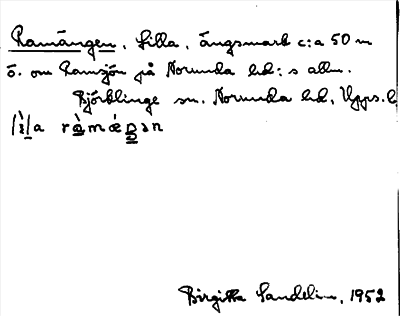 Ramängen, Lilla, ängsmark c:a 50 m
ö. om Ramsjön på Norunda hd:s allm.
Björklinge sn. Norunda hd, Upps. l
Birgitta Sandelin, 1952